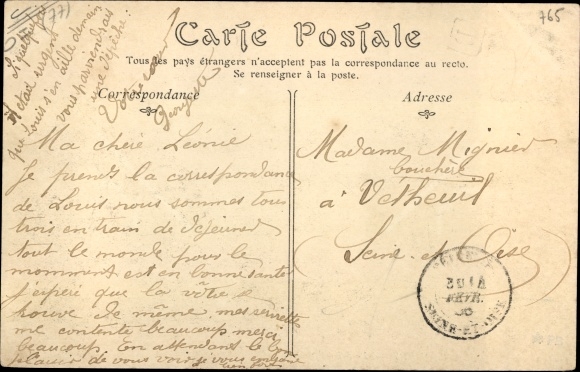 (77)
765
Carte Postale
Tous les pays étrangers n'acceptent pas la correspondance au recto.
Se renseigner à la poste.
Correspondance
Adresse
Ma chère Léonie
Je prends la correspondance
de Louis nous sommes tous
trois en train de dejeuner
tout le monde pour le
momment est en bonne santé
j'éspère que la vôtre
trouve de même, mes serviettes
me contente beaucoup merci
beaucoup. En attendant le
plaisir de vous voir je vous
S'il
était urgent
que Louis s'en aille demain
vous
une dépêche:
Votre sœur
Georgette
Madame Mignier
bouchère
à Vetheuil
(Seine-et-Oise)
FEVR.
SEINE-ET-OISE